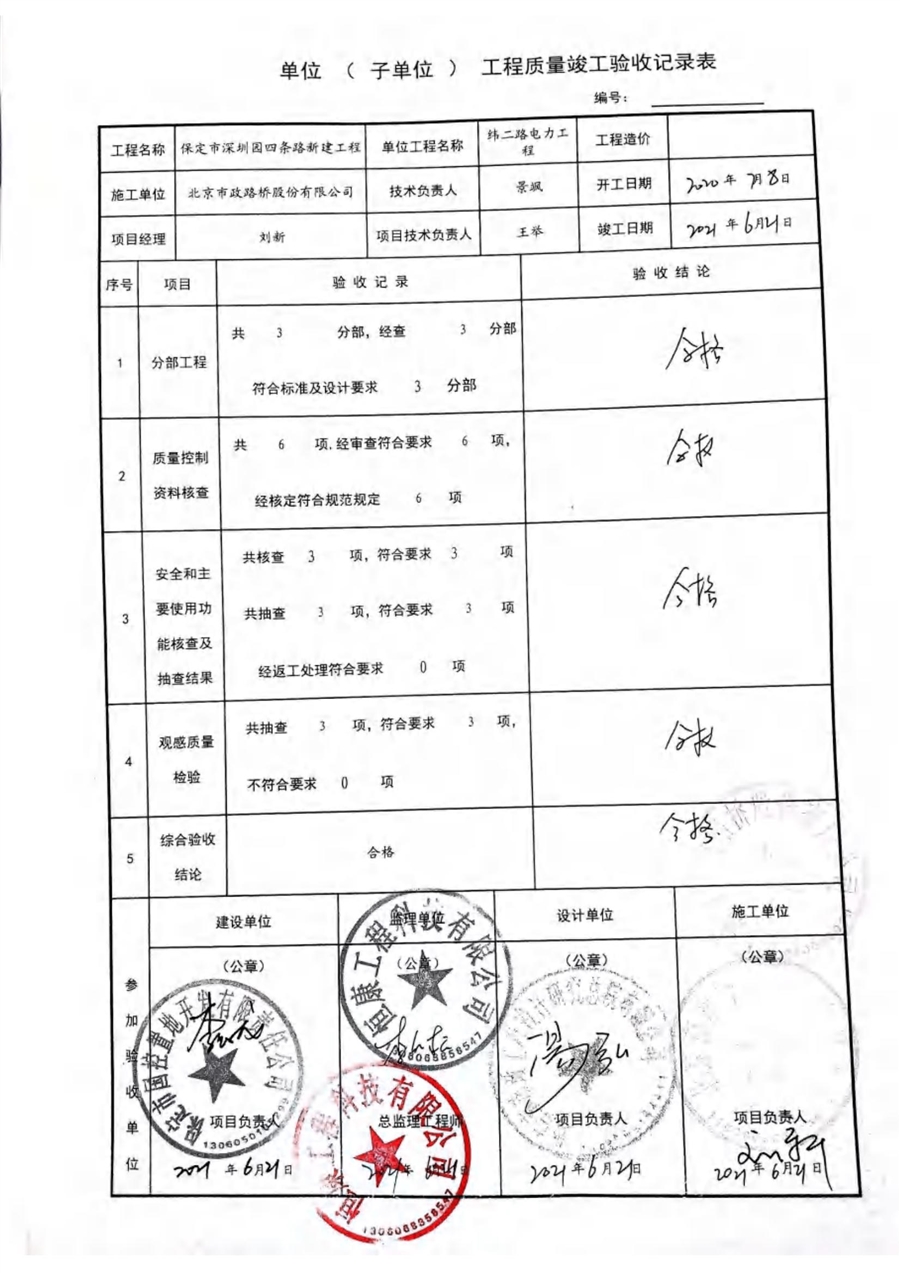 单位 （ 子单位 ） 工程质量竣工验收记录表
编号：
工程名称 保定市深圳园四条路新建工程 单位工程名称 纬二路电力工程 工程造价
施工单位 北京市政路桥股份有限公司 技术负责人 景飒 开工日期 2020年7月8日
项目经理 刘新 项目技术负责人 王举 竣工日期 2021年6月21日
序号 项目 验收记录 验收结论
1 分部工程 共 3 分部，经查 3 分部 合格
符合标准及设计要求 3 分部
2 质量控制资料核查 共 6 项,经审查符合要求 6 项， 合格
经核定符合规范规定 6 项
3 安全和主要使用功能核查及抽查结果 共核查 3 项，符合要求 3 项 合格
共抽查 3 项，符合要求 3 项
经返工处理符合要求 0 项
4 观感质量检验 共抽查 3 项，符合要求 3 项， 合格
不符合要求 0 项
5 综合验收结论 合格 合格
参加验收单位 建设单位 监理单位 设计单位 施工单位
（公章） （公章） （公章） （公章）
保定市国控置地开发有限责任公司
恒康工程科技有限公司
1306068856547
项目负责人 总监理工程师 项目负责人 项目负责人
2021年6月21日 2021年6月21日 2021年6月21日 2021年6月21日
恒康工程科技有限公司
1306068856547